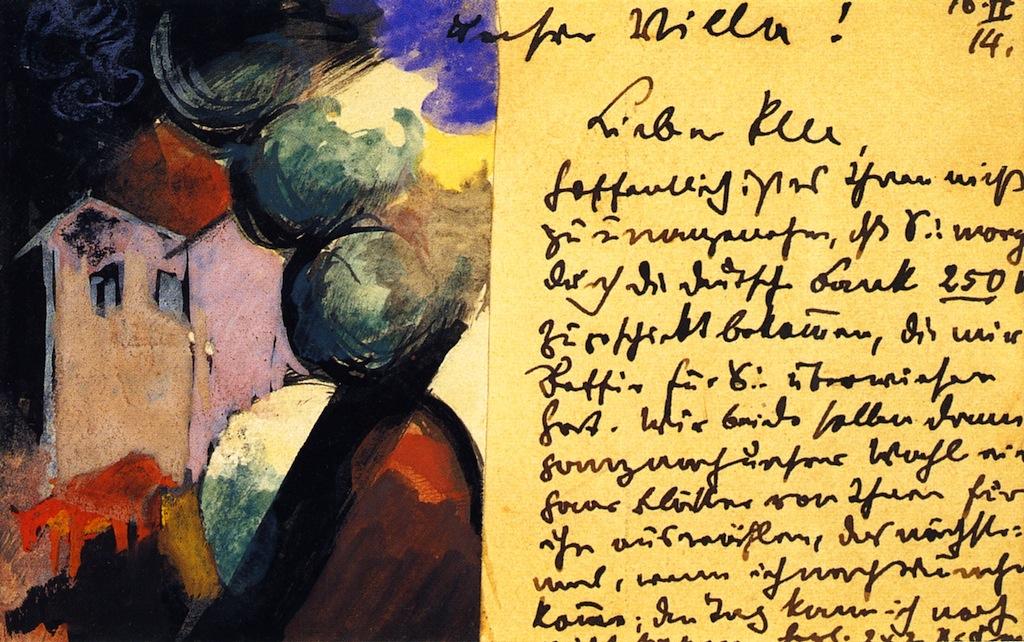 Unser Villa! 16.II
14.
Lieber Klee,
hoffentlich ist es Ihnen nicht
zu unangenehm, dß Sie morg
durch die deutsche Bank 250
zugeschickt bekommen, die mir
für Sie überwiesen
hat. Wir beide sollen dann
ganz nach unsrer Wahl ein
paar Blätter von Ihnen für
ihn auswählen, das nächste-
mal, wenn ich nach München
komme; den Tag kann ich noch